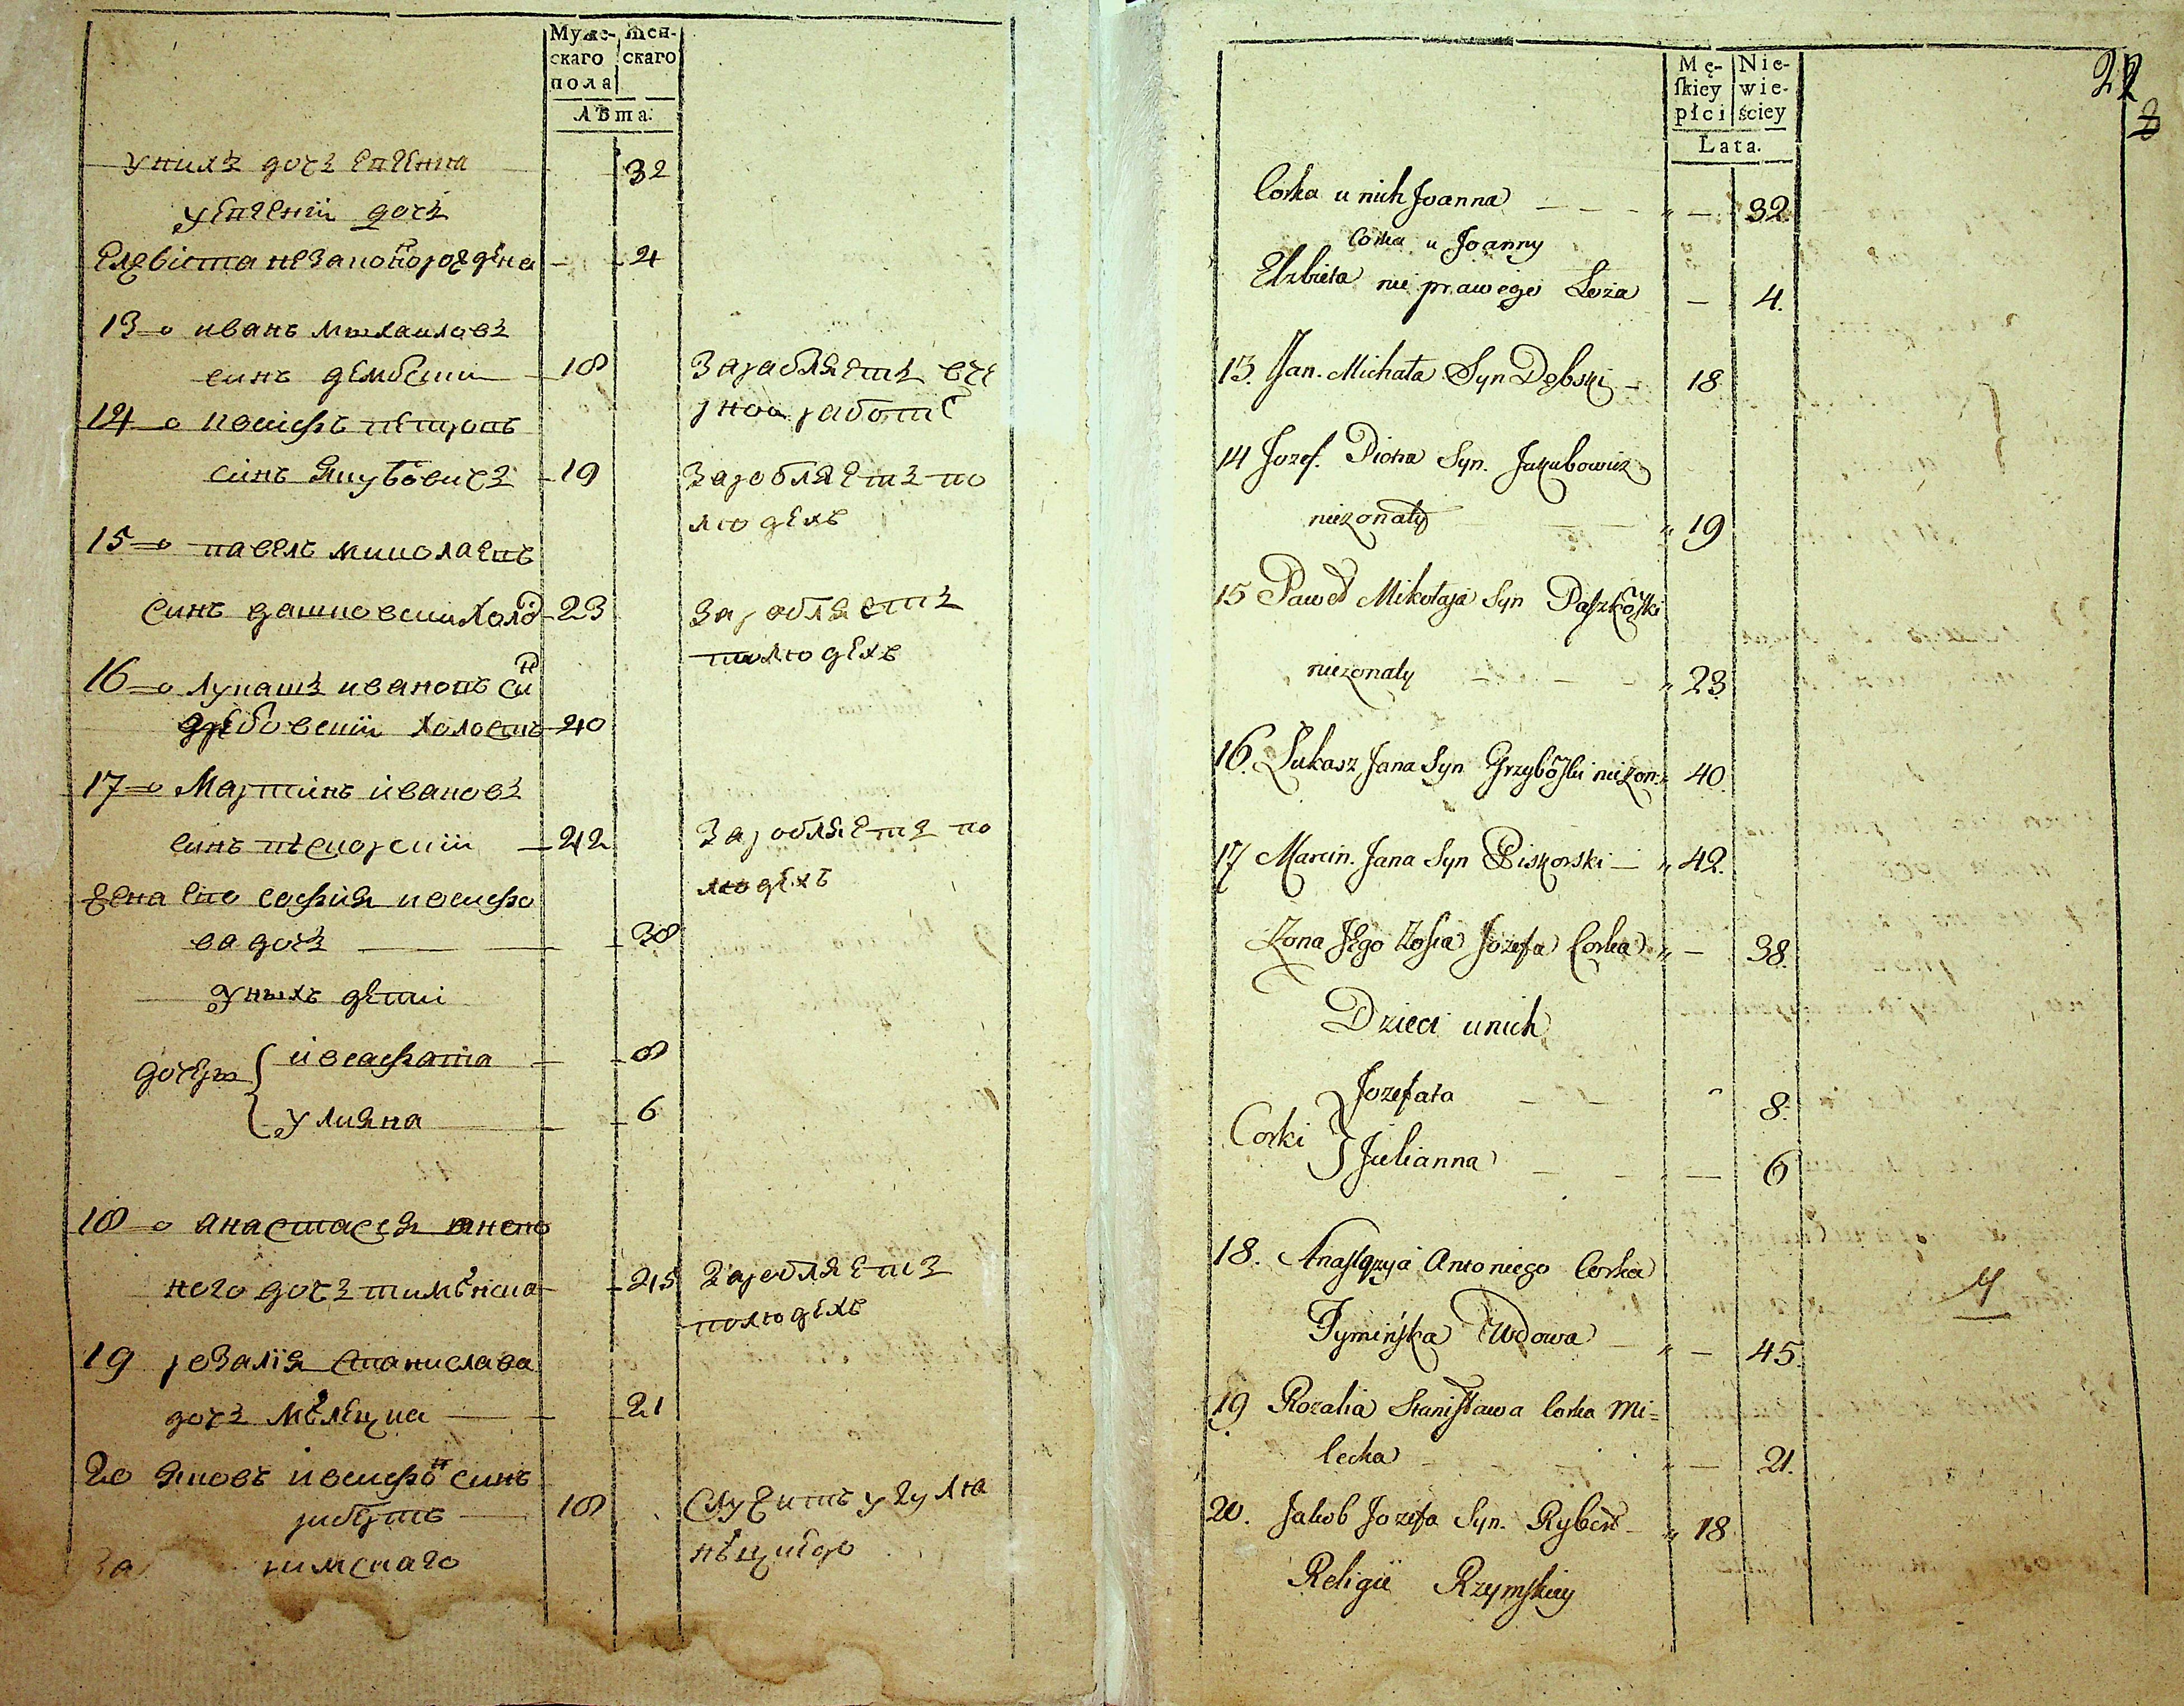 Муже-
скаго
пола
жен-
скаго
Лѣта.
у нихъ дочь
32
дочь
незаконорождена 4
13 иванъ михаиловъ
синъ дембски 18
зарабляетъ
работе
14 иосифъ петровъ
синъ якубовичъ 19
заробляетъ по
людехъ
15 павелъ миколаевъ
синъ холо 23
заробляетъ
по людехъ
16 лукашъ ивановъ синъ
холостъ 40
17 Мартинъ ивановъ
синъ пѣскорскии 42
заробляетъ по
людехъ
жена его софия иосифо
ва дочь 38
у ныхъ дети
дочеры { иосафата 8
улияна 6
18 анастасея
ного дочь тимѣнска 45
заробляетъ
по людехъ
19 розалия станислава
дочь мѣлецка 21
20 яковъ иосифовъ синъ
рибертъ 18
служитъ у
римскаго
Mę-
skiey
płci
Nie-
wie-
ściey
Lata.
22
Corka u nich Joanna 32
Corka u Joanny
Elzbieta nie prawego Loża 4.
13. Jan. Michała Syn Dębski 18.
14 Jozef. Piotra Syn. Jakubowicz
niezonaty 19
15 Paweł Mikołaja Syn Paszkoski
niezonaty 23.
16. Łukasz Jana Syn Grzyboski niezon: 40.
17 Marcin. Jana Syn Piskorski 42.
Zona Jego Zofia Jozefa Corka 38.
Dzieci u nich
Corki } Jozefata 8.
Julianna 6
18. Anastazyja Antoniego Corka
Tymińska Wdowa 45.
19 Rozalia Stanisława Corka Mi=
lecka 21.
20. Jakob Jozefa Syn. Rybert 18
Religii Rzymskiey